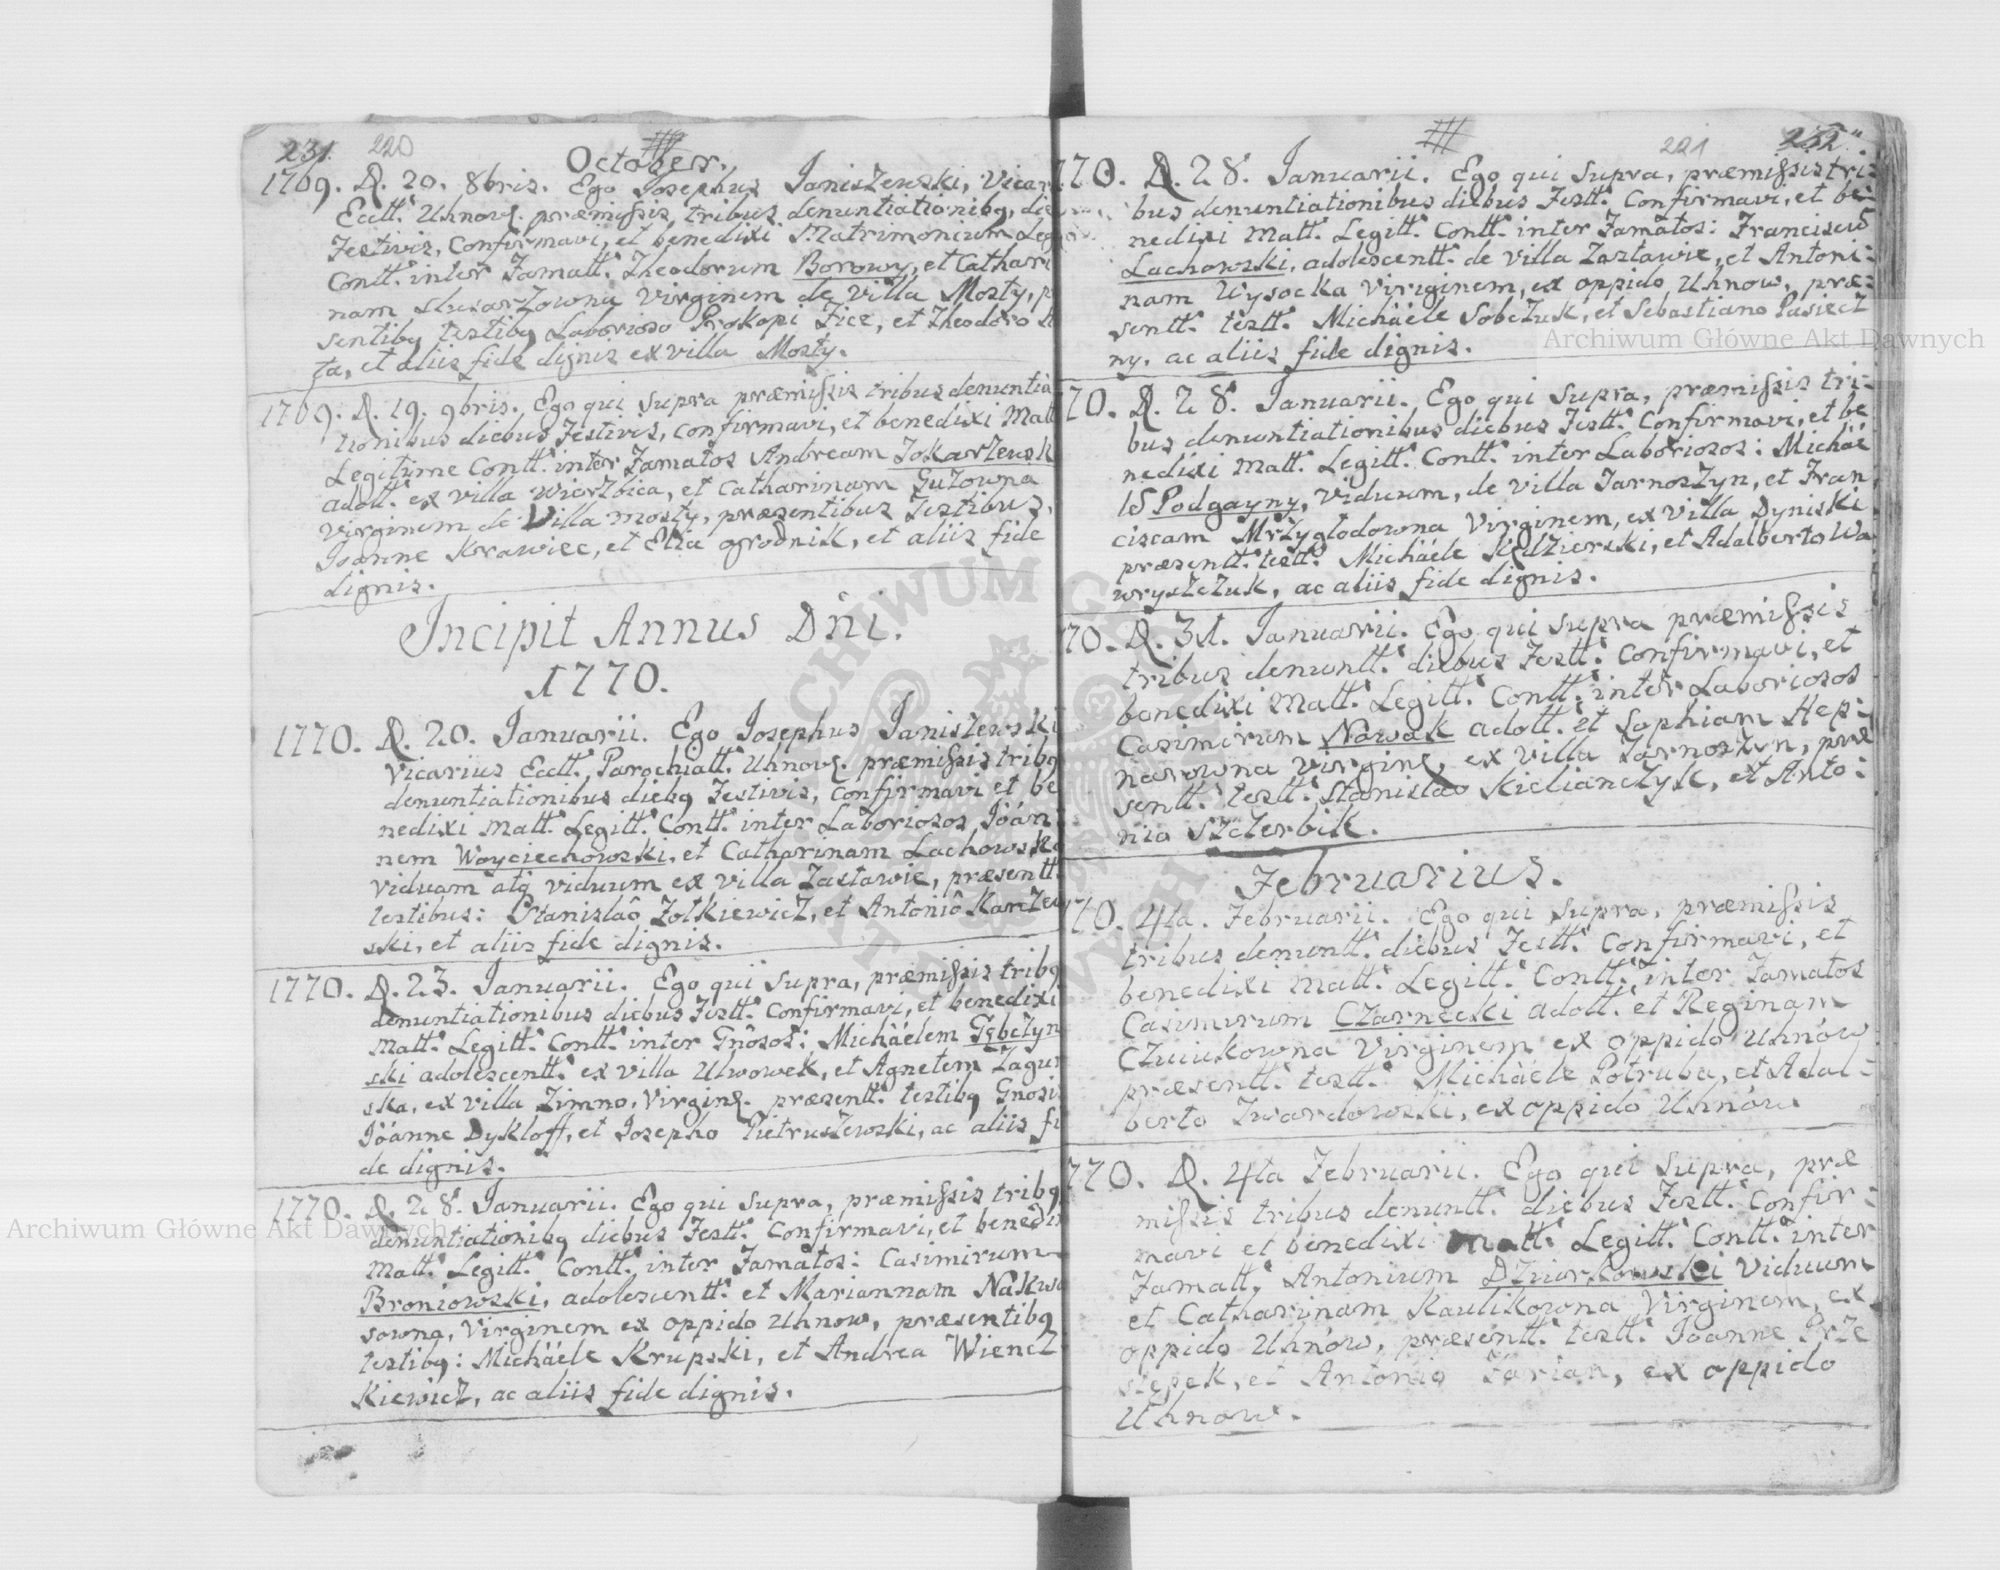 231. 220
October.
1769. D. 20. 8bris. Ego Josephus Janiszewski, Vicar
Eccl͠t. Uhnov. præmissis, tribus denuntiationibq, die
Festivis, Confirmavi, et benedixi Matrimonium Leg
Cont͠t. inter Famat͠t. Theodorum Borowy, et Cathari
nam slusarzowna Virginem de villa Mosty, p
sentibq testibq Laborioso Prokopi Ficz, et Theodoro
ta, et aliis fide dignis ex villa Mosty.
1769. D. 19. 9bris. Ego qui supra præmissis tribus denuntia
tionibus diebus Festivis, confirmavi, et benedixi Mat͠t
Legitime Cont͠t. inter Famatos Andream Tokarzewsk
adolt͠t. ex villa Wierzbica, et Catharinam Guzowna
Virginem de Villa Mosty, præsentibus Testibus,
Joanne Krawiec, et Elia ogrodnik, et aliis fide
dignis.
Incipit Annus Dñi.
1770.
1770. D. 20. Januarii. Ego Josephus Janiszewski
Vicarius Eccl͠t. Parochial͠t. Uhnov. præmissis tribq
denuntiationibus diebq Festivis, confirmavi et be
nedixi Mat͠t. Legit͠t. Cont͠t. inter Laboriosos Jóan
nem Woyciechowski, et Catharinam Lachowsk
viduam atq viduum ex villa Zastawie, præsent͠t.
testibus: Stanislaô Zolkiewicz, et Antoniô Karczew
ski, et aliis fide dignis.
1770. D. 23. Januarii. Ego qui supra, præmissis tribq
denuntiationibus diebus Fest͠t. Confirmavi, et benedixi
Mat͠t. Legit͠t. Cont͠t. inter Gñosos: Michäelem Gębczyn
ski adolescent͠t. ex villa Ulwowek, et Agnetem Zagur
ska, ex villa Zimno, Virginę. præsent͠t. testibq Gnosis
Jöanne Dykloff, et Josepho Pietruszewski, ac aliis fi
de dignis.
1770. D. 28. Januarii. Ego qui supra, præmissis tribq
denuntiationibq diebus Fest͠t. Confirmavi, et benedix
Mat͠t. Legit͠t. Cont͠t. inter Famatos: Casimirum
Broniowski, adolescent͠t. et Mariannam Nakwa
sowna, Virginem ex oppido Uhnow, præsentibq
testibq: Michäele Krupski, et Andrea Wiencz
kiewicz, ac aliis fide dignis.
221 232
770. D. 28. Januarii. Ego qui supra, præmissis tri-
bus denuntiationibus diebus Fest͠t. Confirmavi, et be-
nedixi Mat͠t. Legit͠t. Cont͠t. inter Famatos: Franciscū
Lachowski, adolescent͠t. de villa Zastawie, et Antoni-
nam Wysocka Viriginem, ex oppido Uhnow, præ-
sent͠t. test͠t. Michäele Sobczuk, et Sebastiano Pasiecz
ny, ac aliis fide dignis.
70. D. 28. Januarii. Ego qui supra, præmissis tri-
bus denuntiationibus diebus Fest͠t. Confirmavi, et be
nedixi Mat͠t. Legit͠t. Cont͠t. inter Laboriosos: Michäe
lē Podgayny, Viduum, de villa Tarnoszyn, et Fran
ciscam Mrzyglodowna Virginem, ex villa Dyniski
præsent͠t. test͠t. Michäele Kędzierski, et Adalberto Wa
wryszczuk, ac aliis fide dignis.
70. D. 31. Januarii. Ego qui supra præmissis
tribus denunt͠t. diebus Fest͠t. Confirmavi, et
benedixi Mat͠t. Legit͠t. Cont͠t. inter Laboriosos
Casimirum Nowak adolt͠t. et Sophiam Hep-
narowna virginę, ex villa Tarnoszyn, præ
sent͠t. test͠t. Stanislao Kielianczyk, et Anto-
nio Szczerbik.
Februarius.
770. 4ta. Februarii. Ego qui supra, præmissis
tribus denunt͠t. diebus Fest͠t. Confirmavi, et
benedixi Mat͠t. Legit͠t. Cont͠t. inter Famatos
Casimirum Czarnecki adolt͠t. et Reginam
Czuiukowna Virginem ex oppido Uhnów
præsent͠t. test͠t. Michäele Potruba, et Adal-
berto Twardowski, ex oppido Uhnów
770. D. 4ta Februarii. Ego qui supra, præ
missis tribus denunt͠t. diebus Fest͠t. Confir-
mavi et benedixi Mat͠t. Legit͠t. Cont͠t. inter
Famat͠t. Antonium Dziurkowski Viduum
et Catharinam Kaulikowna Virginem, ex
oppido Uhnów, præsent͠t. test͠t. Jöanne Prze
stępek, et Antonio Farian, ex oppido
Uhnow.
Archiwum Główne Akt Dawnych
Archiwum Główne Akt Dawnych